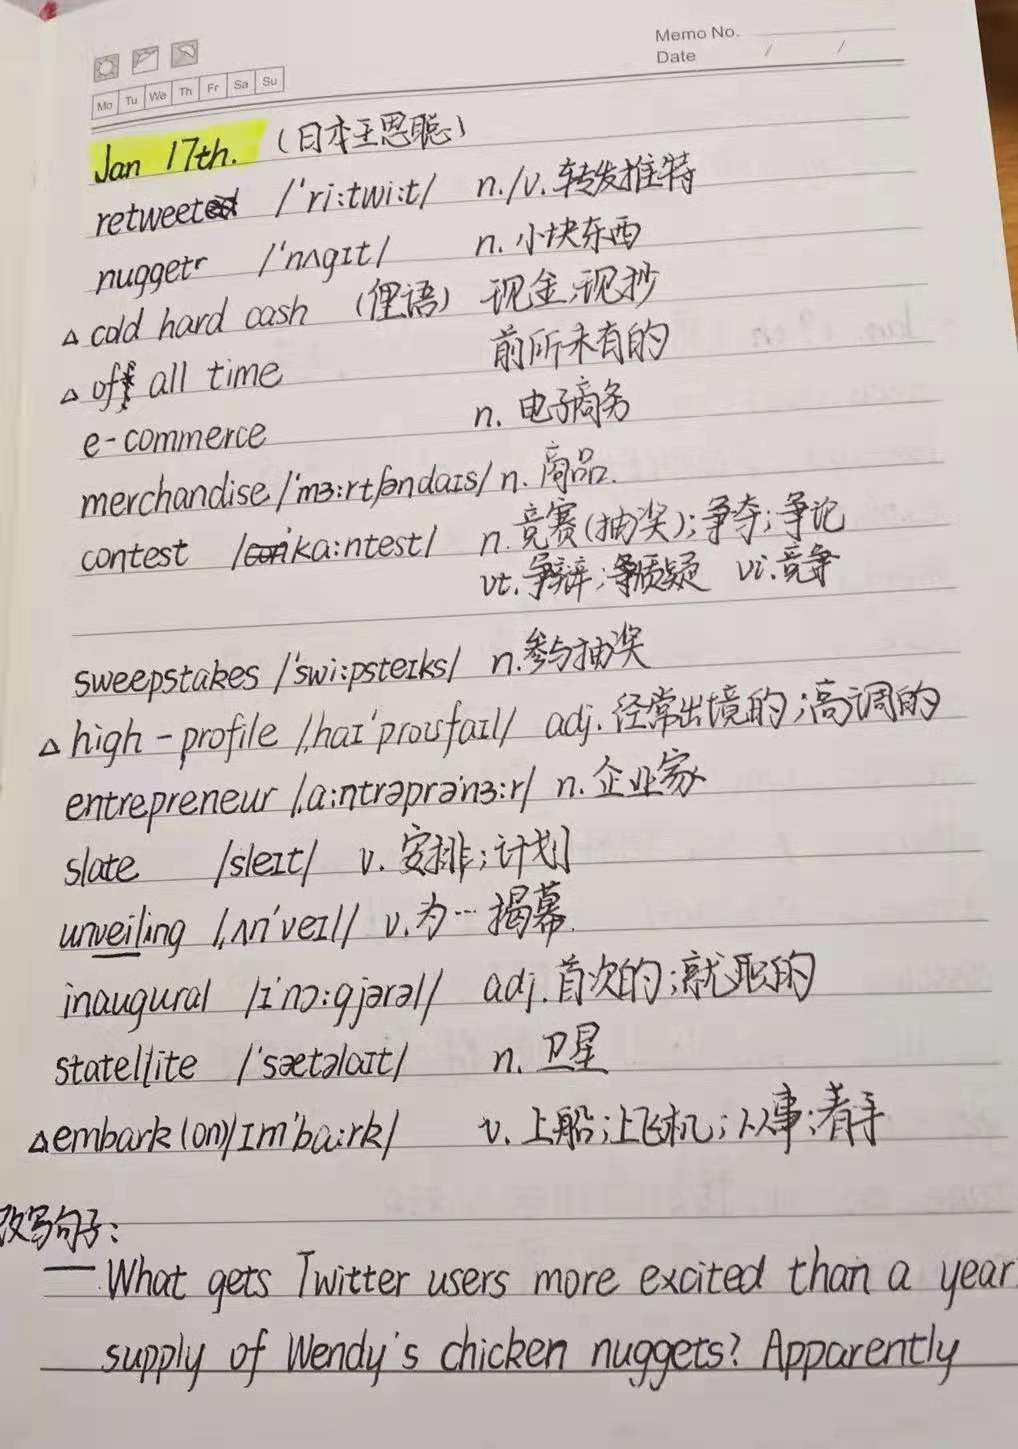 Memo No.
Date / /
Mo Tu We Th Fr Sa Su
Jan 17th. (日本王思聪)
retweet /'ri:twi:t/ n./v. 转发推特
nugget /'nʌgɪt/ n. 小块东西
△ cold hard cash (俚语) 现金;现抄
△ of all time 前所未有的
e-commerce n. 电子商务
merchandise /'mɜ:rtʃəndaɪs/ n. 商品.
contest /'ka:ntest/ n. 竞赛(抽奖);争夺;争论
vt. 争辩;质疑 vi. 竞争
sweepstakes /'swi:psteɪks/ n. 参与抽奖
△ high-profile /,haɪ'proʊfaɪl/ adj. 经常出境的;高调的
entrepreneur /,a:ntrəprə'nɜ:r/ n. 企业家
slate /sleɪt/ v. 安排;计划
unveiling /,ʌn'veɪl/ v. 为…揭幕.
inaugural /ɪ'nɔ:gjərəl/ adj. 首次的;就职的
statellite /'sætəlaɪt/ n. 卫星
△ embark (on) /ɪm'ba:rk/ v. 上船;上飞机;从事;着手
改写句子:
— What gets Twitter users more excited than a year
supply of Wendy's chicken nuggets? Apparently